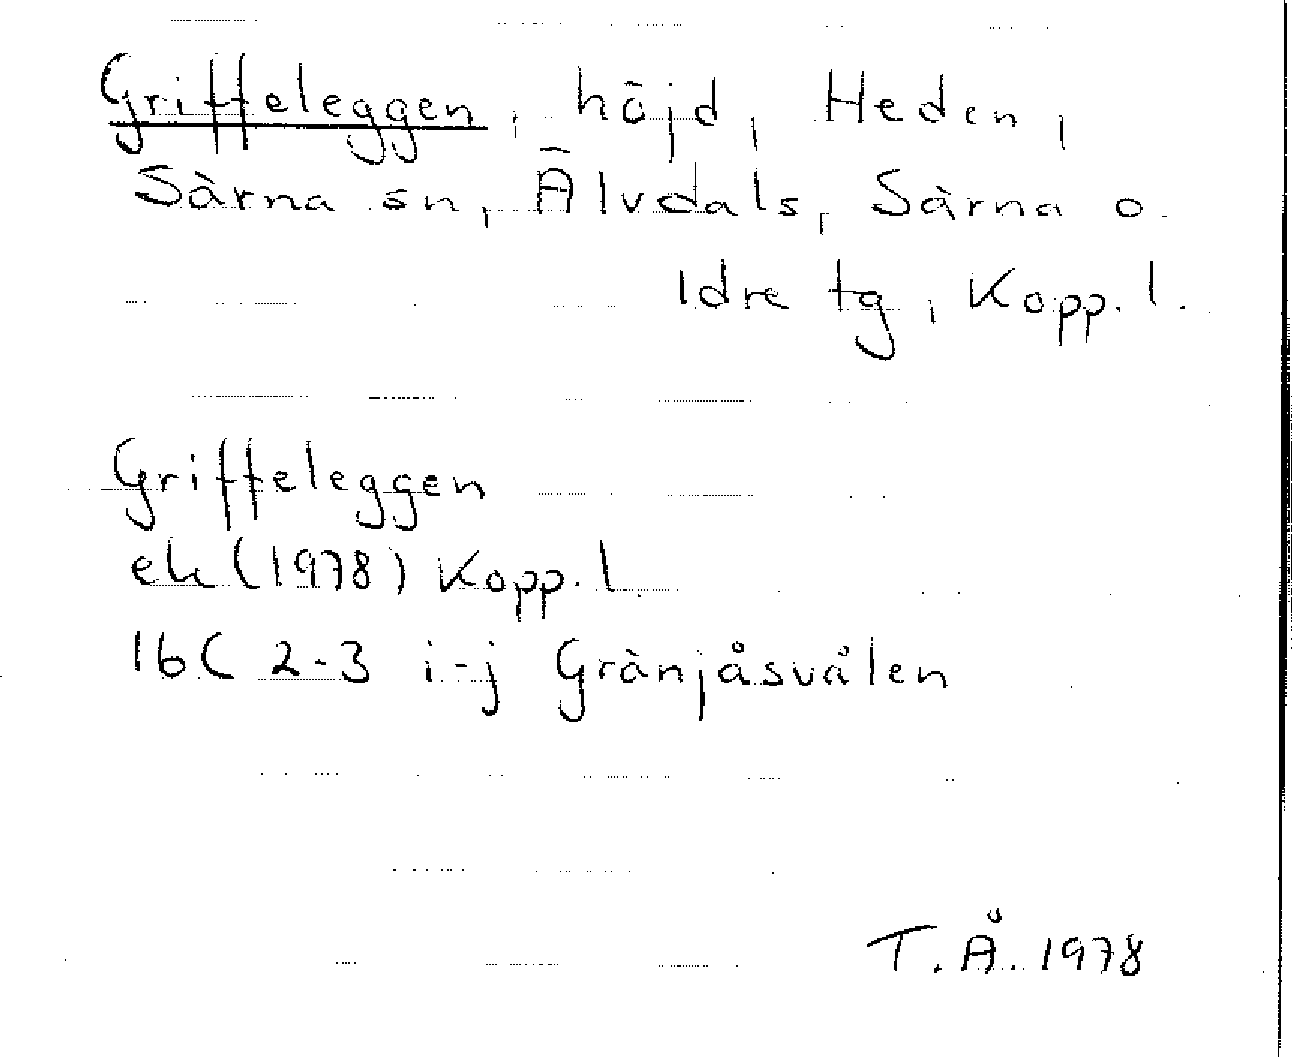 Griffeleggen, höjd, Heden,
Särna sn, Älvdals, Särna o.
Idre tg, Kopp. l.
Griffeleggen
ek (1978) Kopp. l.
16C 2-3 i-j Gränjåsvålen
T. Å. 1978